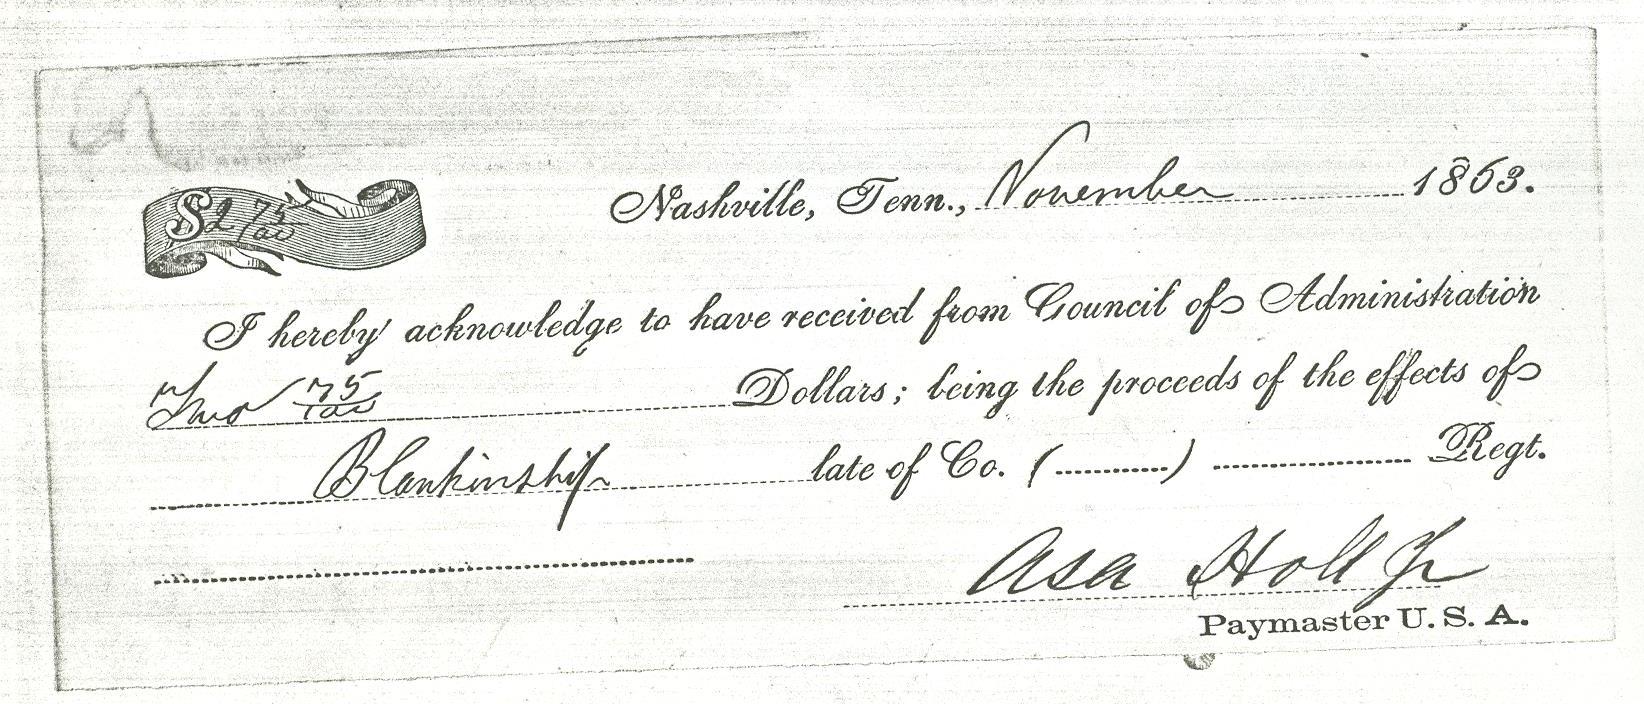 Nashville, Tenn., November 1863.
$2 75/100
I hereby acknowledge to have received from Council of Administration
Two 75/100 Dollars; being the proceeds of the effects of
Blankinship late of Co. ( ) Regt.
Asa Holt Jr
Paymaster U. S. A.